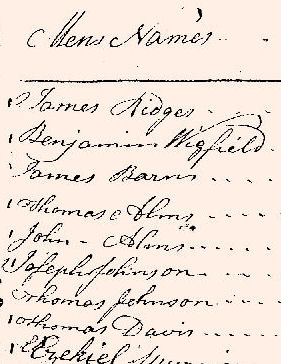 Mens Names
James Ridges
Benjamin Wigfield
James Barns
Thomas Alms
John - Alms
Joseph Johnson
Thomas Johnson
Thomas Davis
Ezekiel